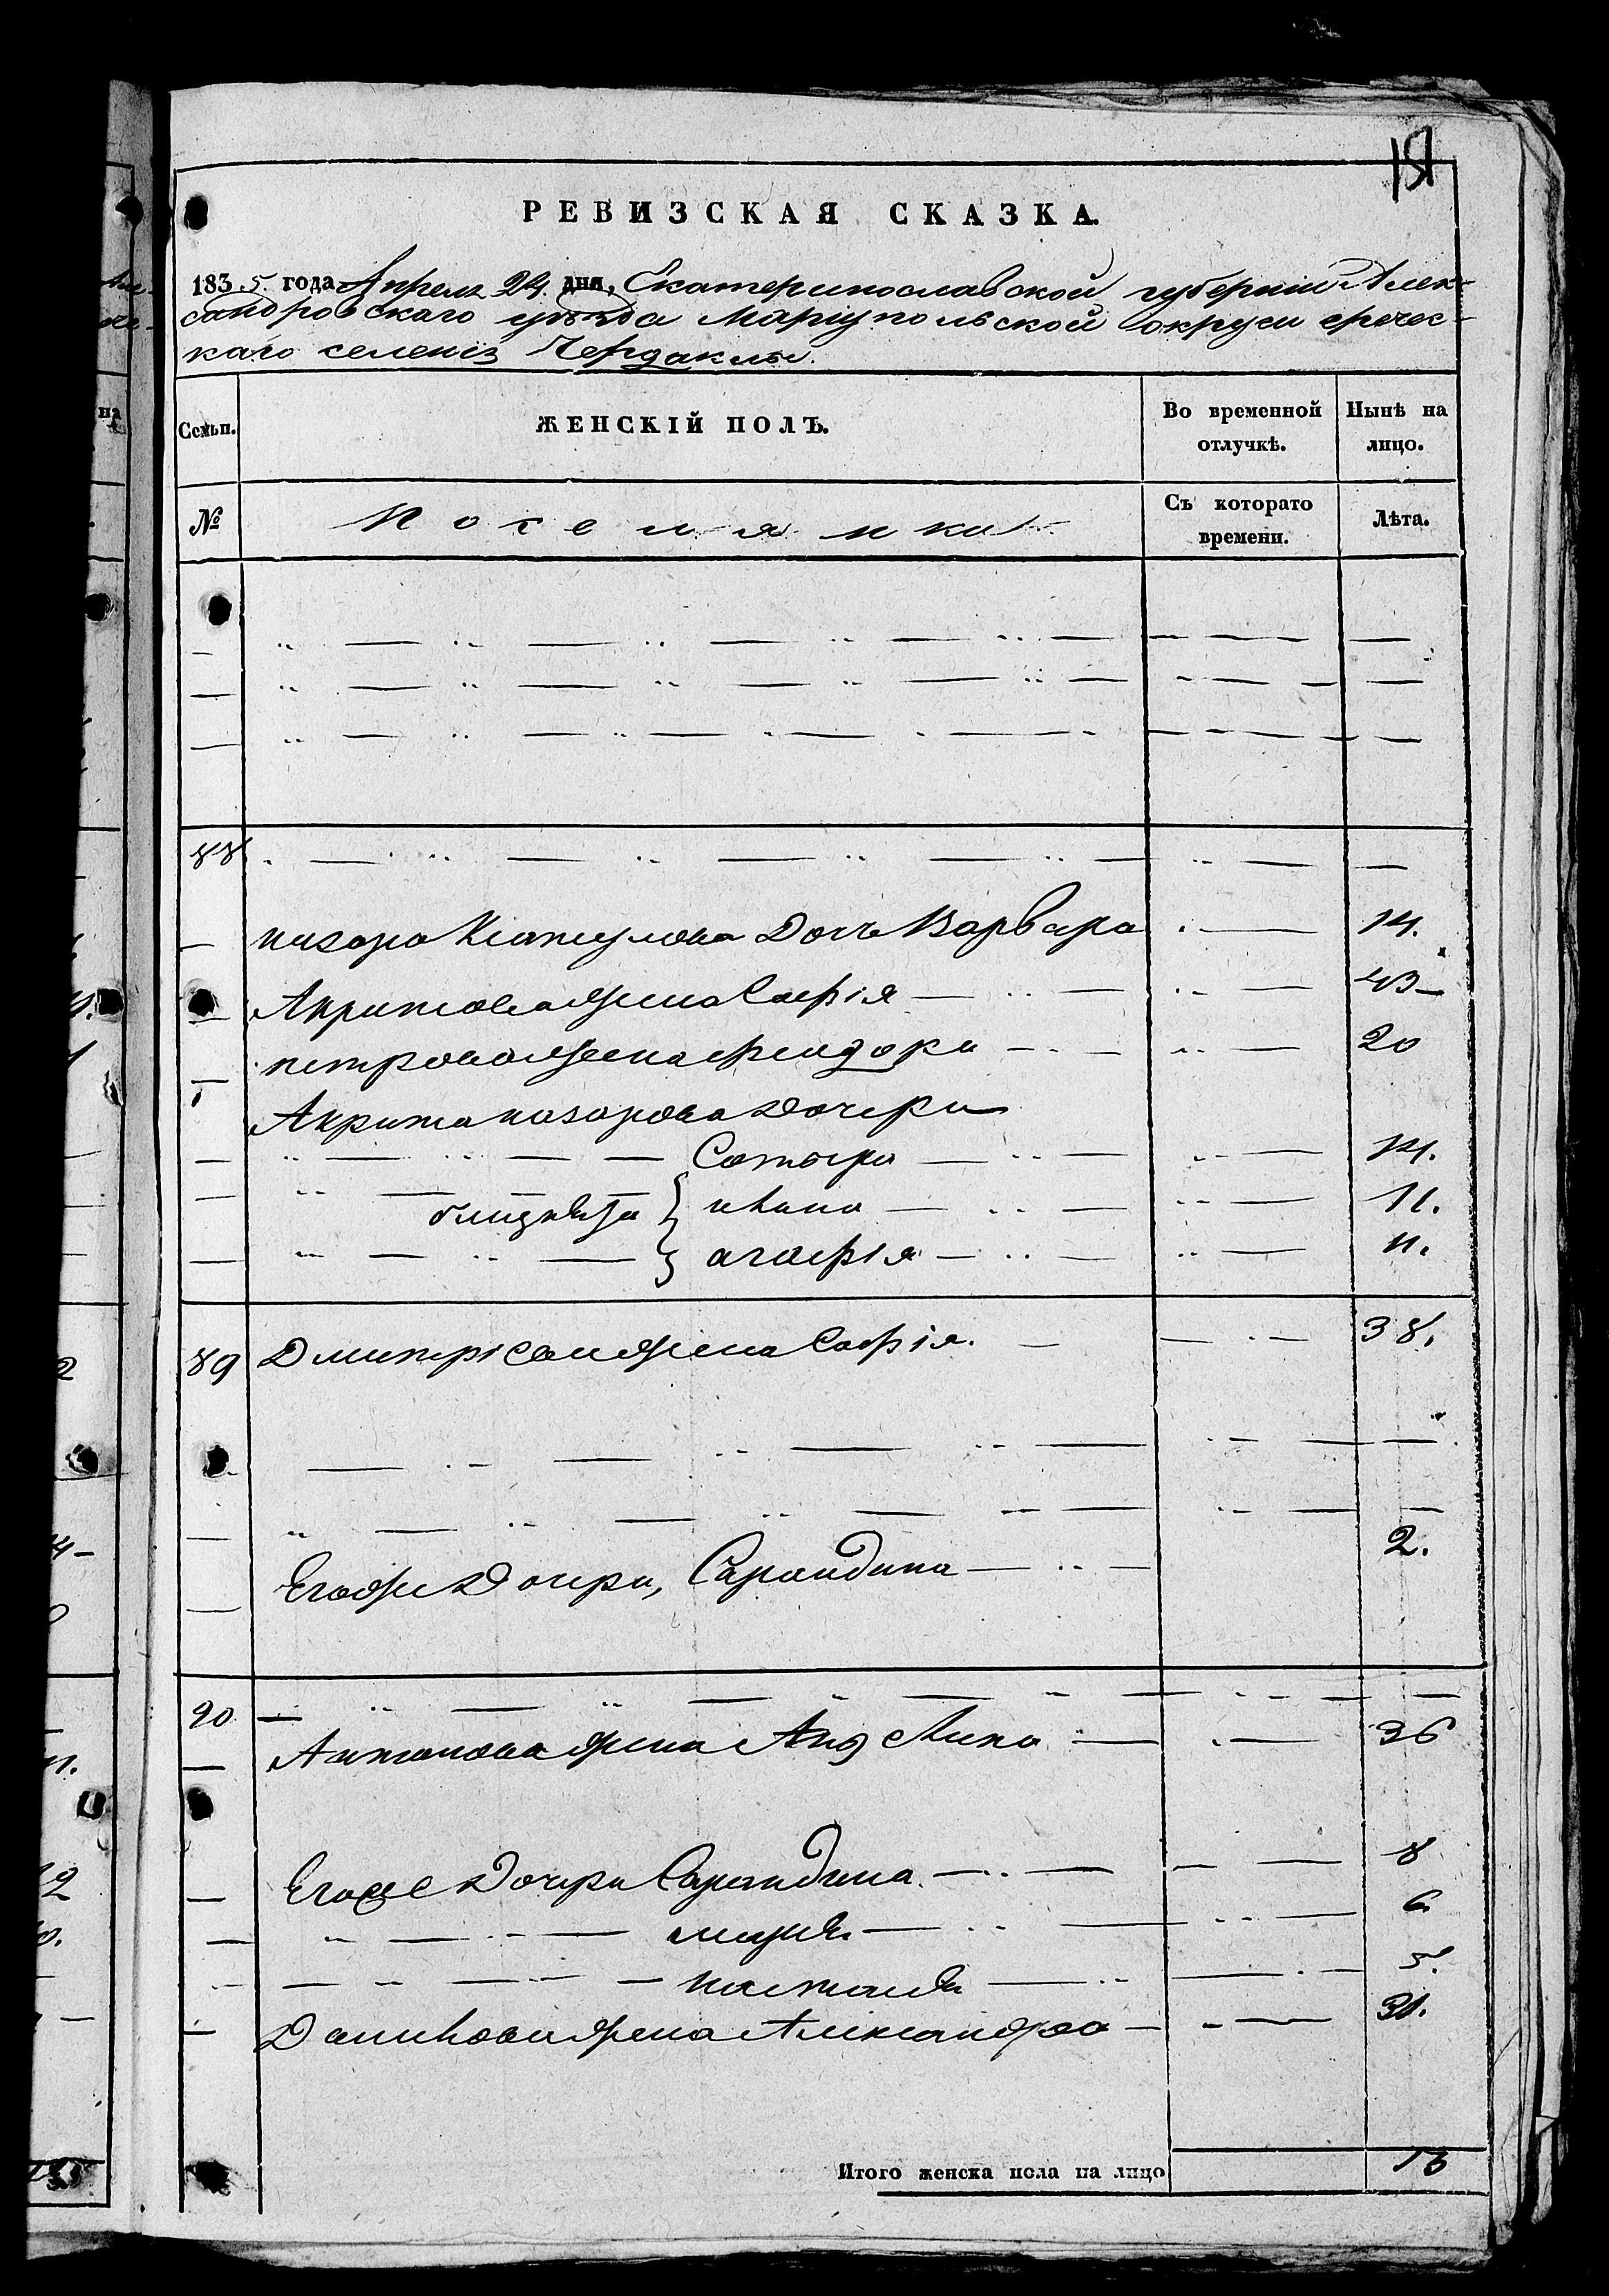 151
РЕВИЗСКАЯ СКАЗКА.
1835 года Апреля 24 дня, Екатеринославской губернии Алек-
сандровскаго уѣзда Мариупольской округи гречес-
каго селения Чердаклы.
Семьи. ЖЕНСКІЙ ПОЛЪ. Во временной отлучкѣ. Нынѣ на лицо.
№ Поселянки Съ котораго времени. Лѣта.
88
назара дочь Варвара 14.
Акритова жена Софія 43
петрова жена феидора 20
Акрита назарова дочери
Сотира 14.
близнята { ивана 11.
агафія 11.
89 Дмитрієва жена Софія. 38.
Егоже дочери, Сарандина 2.
90
Антонова жена Анд 36
Егоже дочери Сарандина 8
6
настасія 5.
жена Александра 31.
Итого женска пола на лицо 13